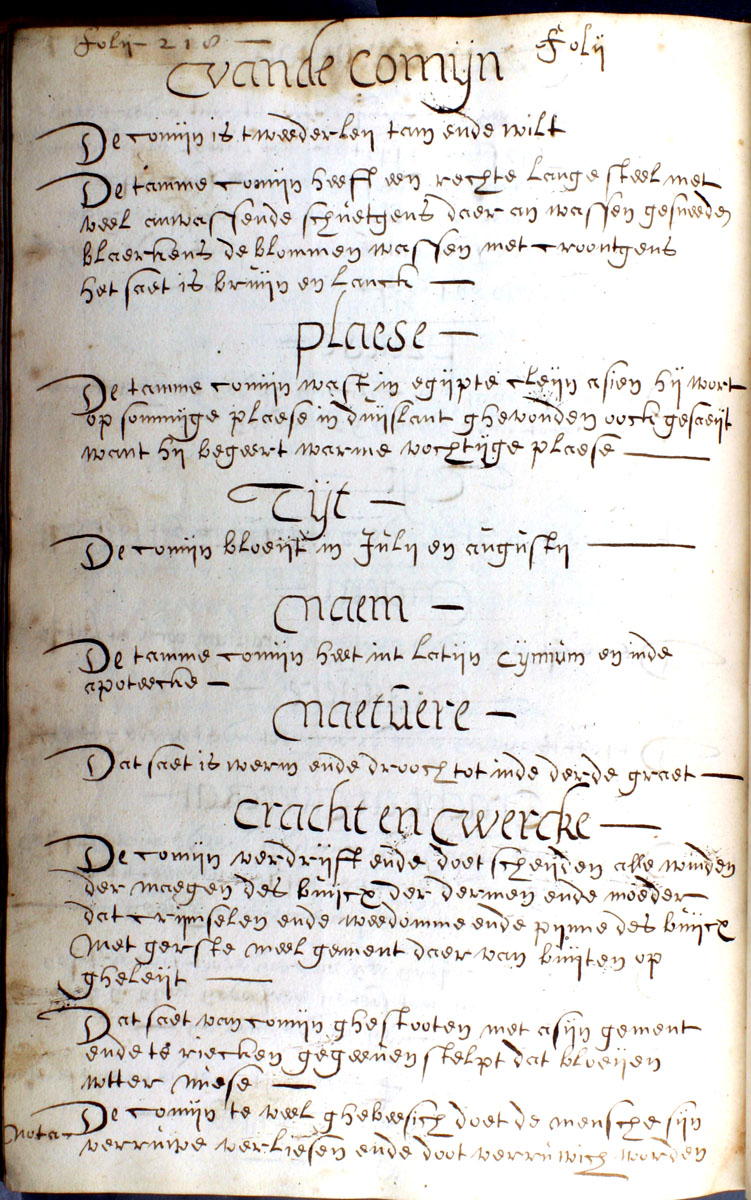 folij 218 folij
vande comijn
De comijn is tweederleij tam ende wilt
De tamme comijn heeft een rechte lange steel met
veel anwassende schuetgens daer an wassen gesneeden
blaerkens de blommen wassen met croontgens
het saet is bruijn en lanck
plaese
De tamme comijn wast in egijpte cleijn asien hij wort
op sommijge plaese in duijslant ghevonden oock gesaeijt
want hij begeert warme vochtijge plaese
Tijt
De comijn bloeijt in Julij en augustij
naem
De tamme comijn heet int latijn cijmium en inde
apoteecke
naetuere
Dat saet is werm ende drooch tot inde derde graet
cracht en wercke
De comijn verdrijft ende doet scheijden alle winden
der maegen des buijcx der dermen ende moeder
dat crijmselen ende weedomme ende pijnne des buijcx
met gerste meel gement daer van buijten op
gheleijt
Dat saet van comijn ghestooten met asijn gement
ende te riecken gegeeven stelpt dat bloeijen
wtter nuese
nota De comijn te veel ghebeesich doet de mensche sijn
verruwe verliesen ende doot verruwich worden